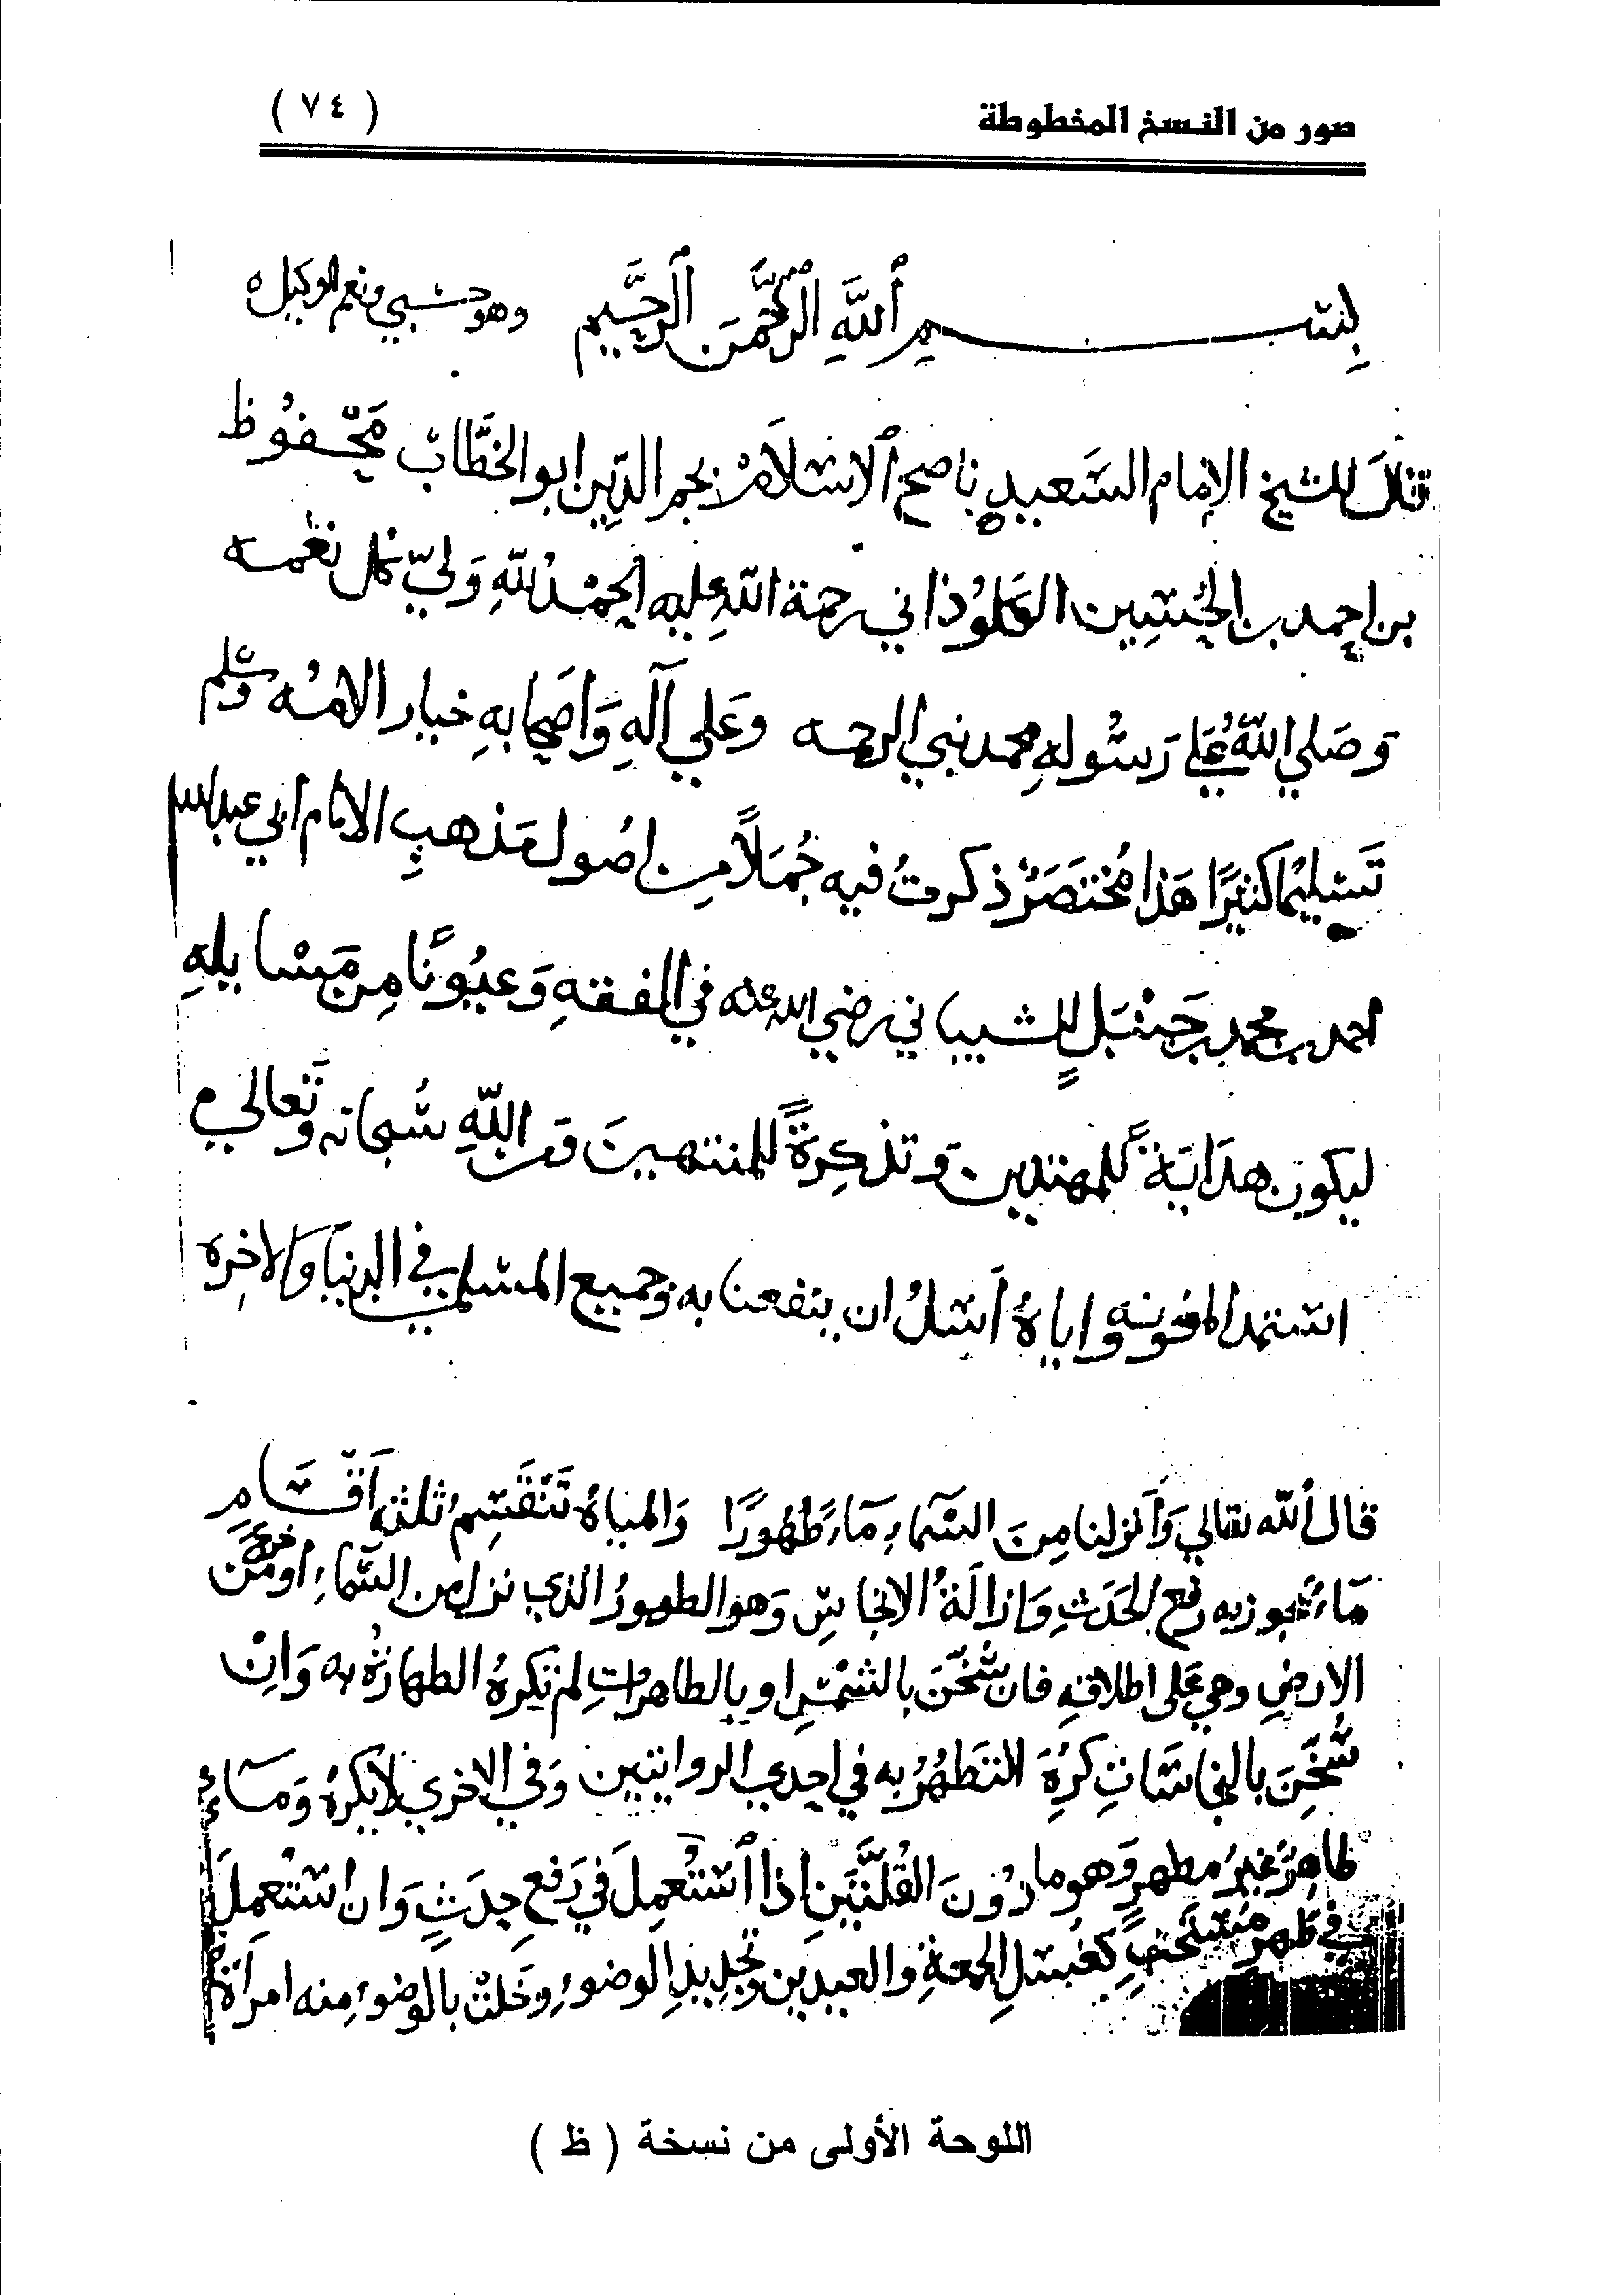 صور من النسخ المخطوطة
( ٧٤ )
بسم ٱللَّهِ الرَّحْمَنَ ٱلرحَّيم وهو حسبي ونعم الوكيل ه
الشيخ الإمام السَعيد ناصح ٱلاسْلَام نجم الدّين ابو الخطَّاب مَحْفوُظ
بن احمد بن الحُسَين الكَلوُذاني رحمة اللهِ عليه الحمْدُ للّهِ وَليّ كُل نعْمه
وَصَلي اللهُ عَلي رَسُولهِ محمد نبي الرحمه وَعَلي آلهِ وَاصَحابهِ خيار الامُه وسَلم
تَسْليْمًا كثيرًا هَذا مُخْتصَرٌ ذكرتُ فيه جُمَلًا مِن اصُول مَذهب الامام ابي عبدالله
احمد بن محمد بن حَنْبَلٍ الشيباني رضي الله عنه في الفقهِ وَعيُونًا مِن مَسْايلهِ
ليكون هدَايَةً للمبتدين وَتذكِرَةً للمنتهينَ وَمن اللّهِ سُبحانه وَتَعالي
استمد المعونه واياهُ أَسْلُ ان ينفعنا به وجميع المسْلمين في الدنيا وَالاخِره
قال اللّه تعالي وَأنزلنا مِنَ السَّمآءِ مَآءً طَهُورًا وَالمياهُ تَنْقَسِمُ ثلثة أَقْسَامٍ
مَآءٌ يَجوز به رَفع الحَدَثِ وَازالَةُ الانجاسِ وَهو الطهورُ الذي نزل من السَّماءِ أو نبَع من
الارضِ وهي عَلى اطلاقهِ فان سُخّنَ بالشمْسِ او بالطاهِراتِ لم تكرهُ الطهارَةُ به وَانْ
سُخّنَ بالنجاسَاتِ كرُهَ التَطَهُرُ به في احِدي الروايتين وَفي الاخري لا يكرهُ وَمَآءٌ
طاهِرٌ غيرُ مطهرٍ وَهو ما دُونَ القُلتَّينِ اذا اسْتُعمِلَ في رَفع حَدثٍ وَان اسْتُعمِلَ
في طهرٍ مُسْتحَبٍ كغُسْلِ الجمعةِ والعيدين وَتَجدِيدِ الوضوءِ وخَلتْ بالوضوءِ مِنه امرَأةٌ
اللوحة الأولى من نسخة ( ظ )